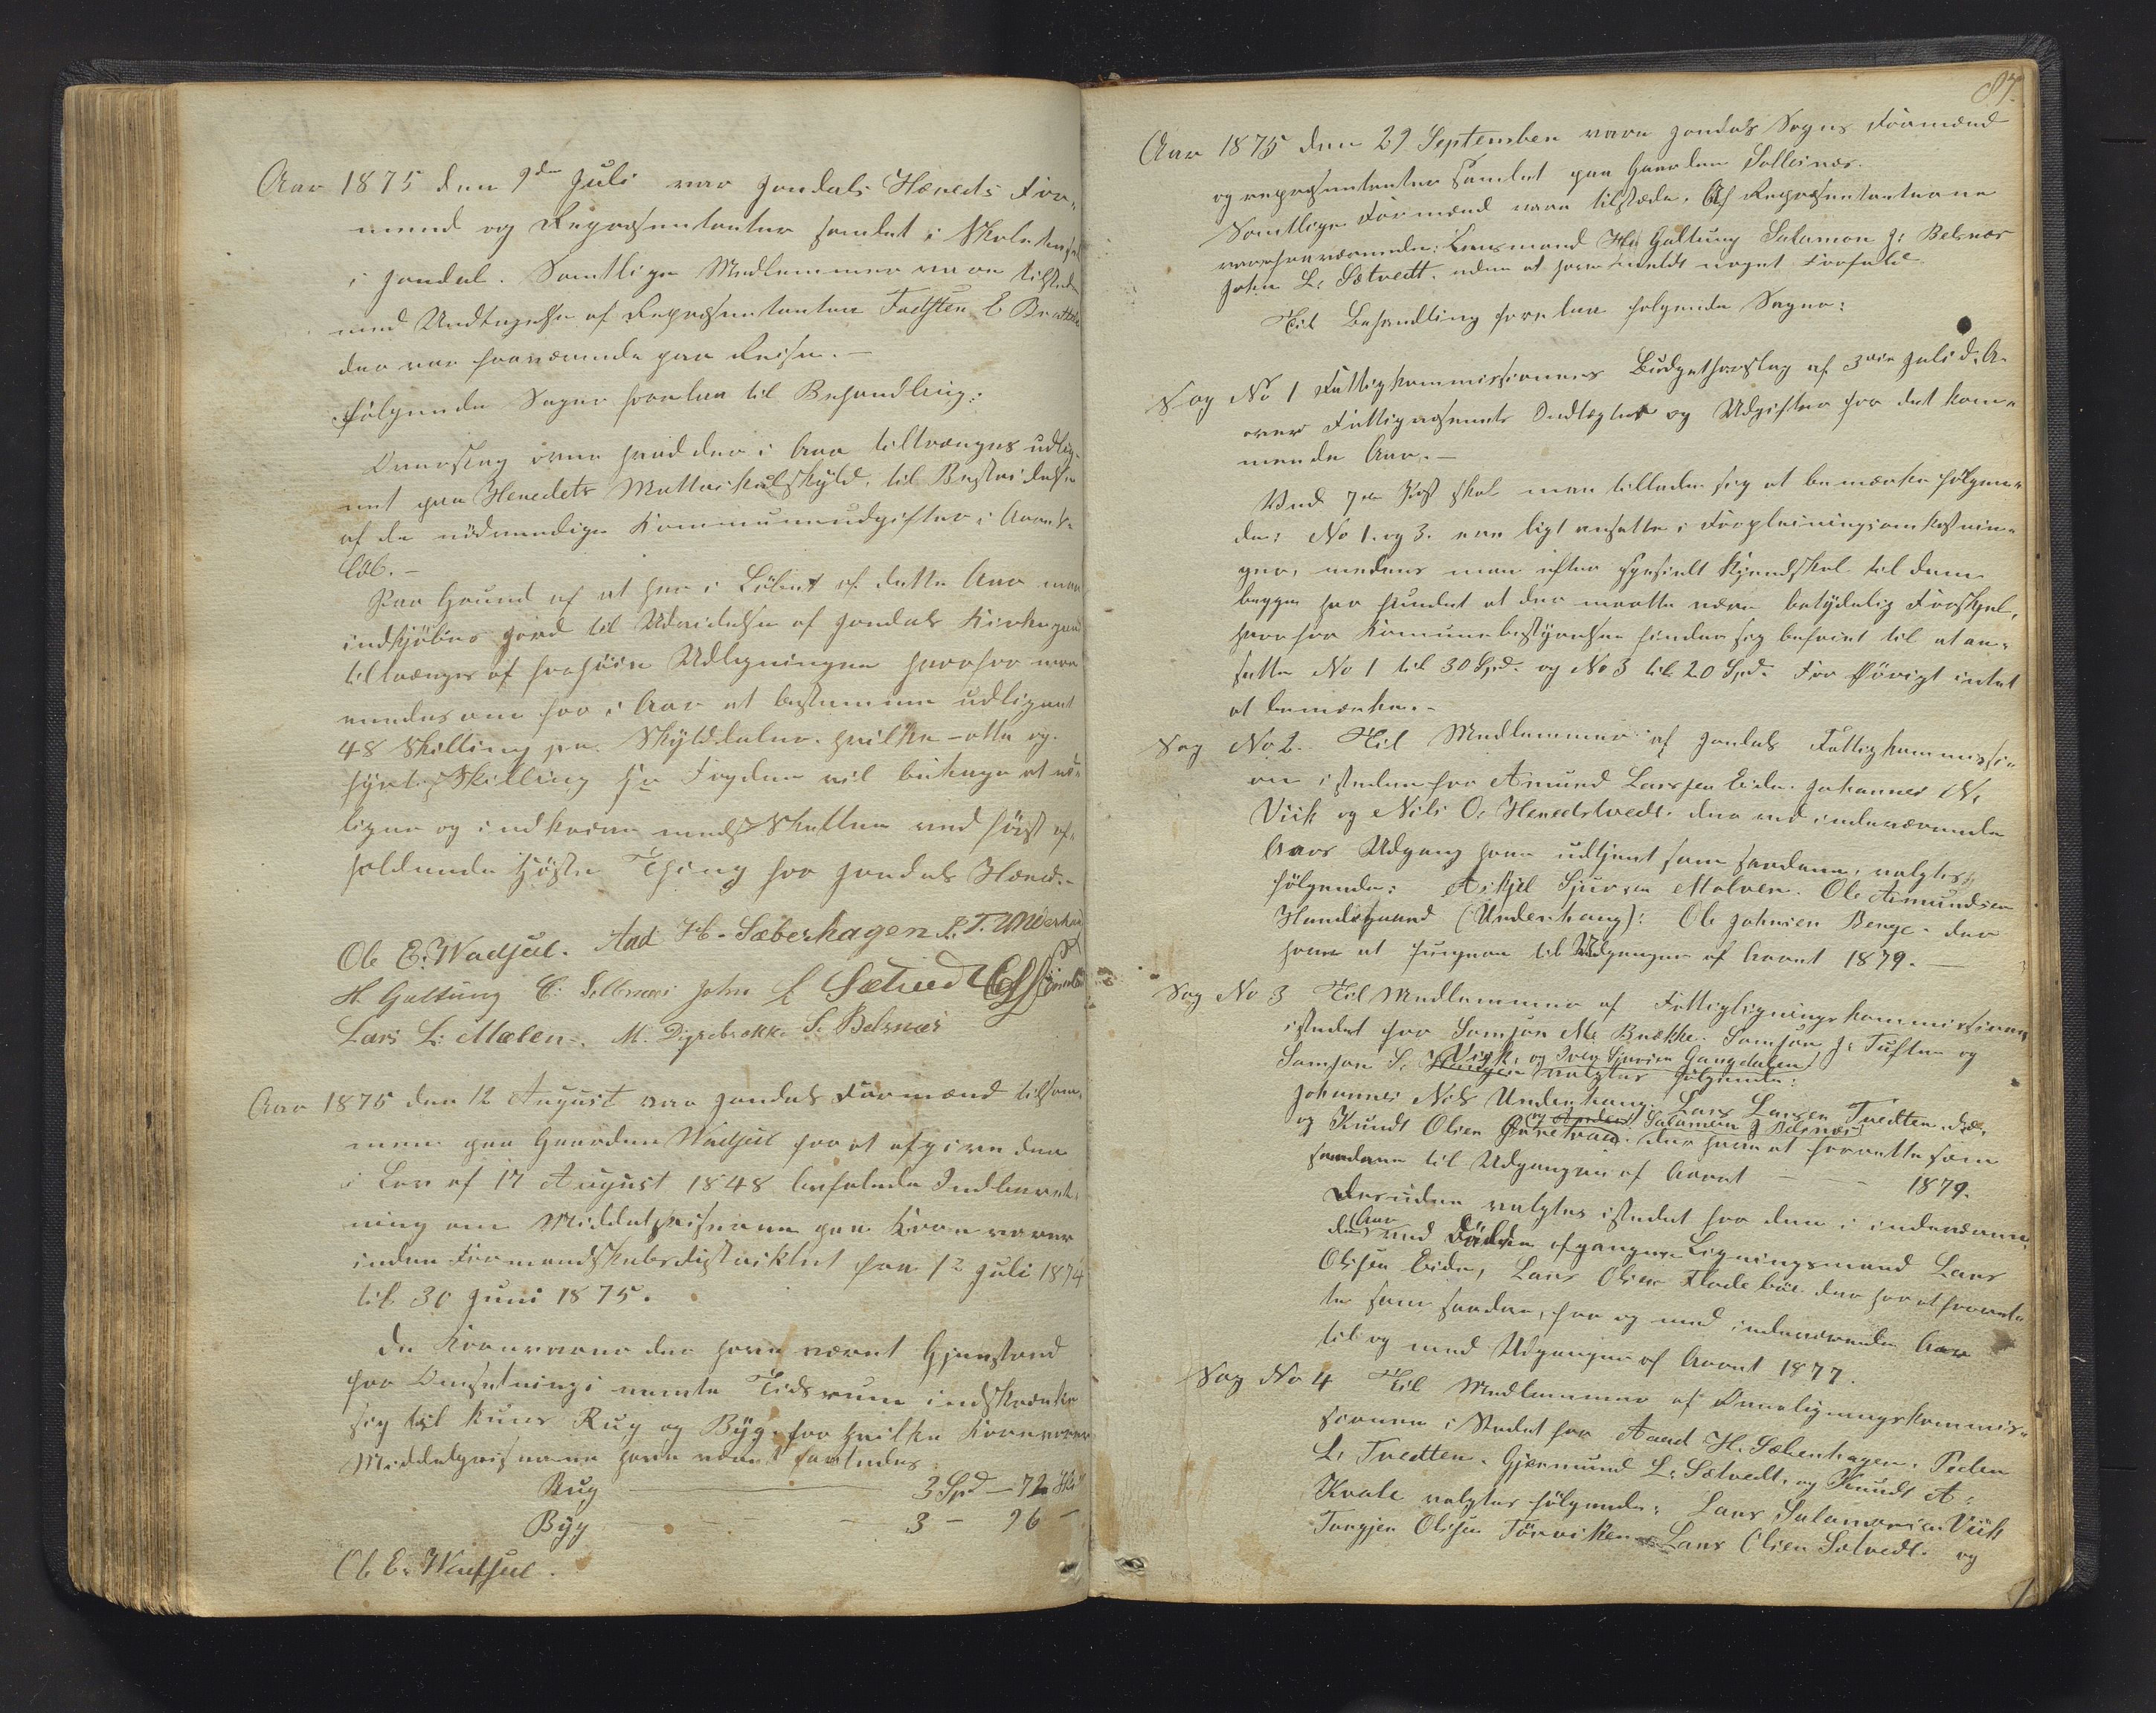 Aar 1875 den 9de Juli var Jondals Hereds For-
mænd og Repræsentanter samlet i Skolehuset
i Jondal. Samtlige Medlemmer vare tilstede
med Undtagelse af Repræsentanten Tosten E
der var fraværende paa Reise. –
følgende Sager foretan til Behandling:
Overslag over hvad der i Aar tiltrænges udlig-
net paa Heredets Mattrikulskyld, til Bestridelse
af de nödvendige Kommuneudgifter i Aarets
Löb. –
Paa Grund af at her i Löbet af dette Aar maa
indkjöbes Jord til Udvidelse af Jondals Kirkegaard
tiltrænges af forhöie Udligningen hvorfor man
enedes om for i Aar at bestemme udlignet
48 Skilling pr. Skylddaler. hvilke – otte og
fyrti Skilling Hr Fogden vil behage at ud-
ligne og indkræve med Skatten ved först af-
holdende Höste Thing for Jondals Hered.
Ole E. Wadsel. Aad H. Sæberhagen P. T. Underhaug
H. Galtung E: Selbenæs John L Sætved
Lars L: Mælen. M. Digrebrække S. Belsnæs
Aar 1875 den 12 August var Jondals Formænd tilsam-
men paa Gaarden Wadsel for at afgive den
i Lov af 17 August 1848 befalede Indberet-
ning om Middelpriserne paa Kornvarer
inden Formandskabsdistriktet fra 12 Juli 1874
til 30 Juni 1875.
De Kornvarer der have været Gjenstand
for Omsetning i nævnte Tidsrum indskrænke
sig til kuns Rug og Byg. for hvilke Kornvarer
Middelpriserne have været saaledes
Rug 3 Spd – 72 Sk
Byg – – – 3 – 96 –
Ole E. Wadsel.
87.
Aar 1875 den 29 September vare Jondals Sogns Formænd
og repræsentanter samlet paa Gaarden Solbenæs.
Samtlige Formænd vare tilstede. Af Repræsentanterne
vare fraværende: Lensmand H. Galtung Salamon J: Belsnæs
John L. Sætvedt. uden at have meldt noget Forfald
Til Behandling foretan følgende Sager:
Sag No 1 Fattigkommissionens Budgetforslag af 3die Juli d. A.
over Fattigvæsenets Indtægter og Udgifter for det kom-
mende Aar. –
Ved 7de Post skal man tillade sig at bemærke følgen-
de: No 1. og 3. ere ligt ansatte i Forpleiningsomkostnin-
ger, medens man efter specielt Kjendskab til dem
begge har fundet at der maatte være betydelig Forskjel,
hvorfor Komunebestyrelsen finder sig beföiet til at an-
sætte No 1 til 30 Spd. og No 3 til 20 Spd. For Övrigt intet
at bemærke. –
Sag No 2. Til Medlemmer af Jondals Fattigkommissi-
on istedenfor Amund Larssen Eide. Johannes N.
Viik og Nils O. Heredstvedt. der ved indeværende
Aars Udgang have udtjent som saadane, valgtes
følgende: Askjel Sjursen Molven. Ole Amundsen
(Underhaug): Ole Johnsen Berge. der
have at fungere til Udgangen af Aaret 1879. –
Sag No 3 Til Medlemmer af Fattigligningskommissionen
istedet for Samson M. Brække. Samson J: Tuften og
Samson S. Viik, og Iver Sjursen Gangdalen valgtes følgende:
Johannes Nils Underhaug. Lars Larsen Tvedten,
og Knudt Olsen og Salamon J Belsnæs der have at forrette som
saadane til Udgangen af Aaret – – – 1879.
Desuden valgtes istedet for den i indeværen-
de Aar ved Döden afgangne Ligningsmand Lars
Olssen Eide, Lars Olsen Fladeböe der har at forret-
te som saadan, fra og med indeværende Aar
til og med Udgangen af Aaret 1877.
Sag No 4 Til Medlemmer af Overligningskommis-
sionen i Stedet for Aand H. Sæbenhagen. Peder
L. Tvedten. Gjermund L. Sætvedt. og Knudt A.
Kvale valgtes følgende: Lars Salamonsen Viik
Torgjer Olssen Törviken Lars Olsen Sætvedt. og